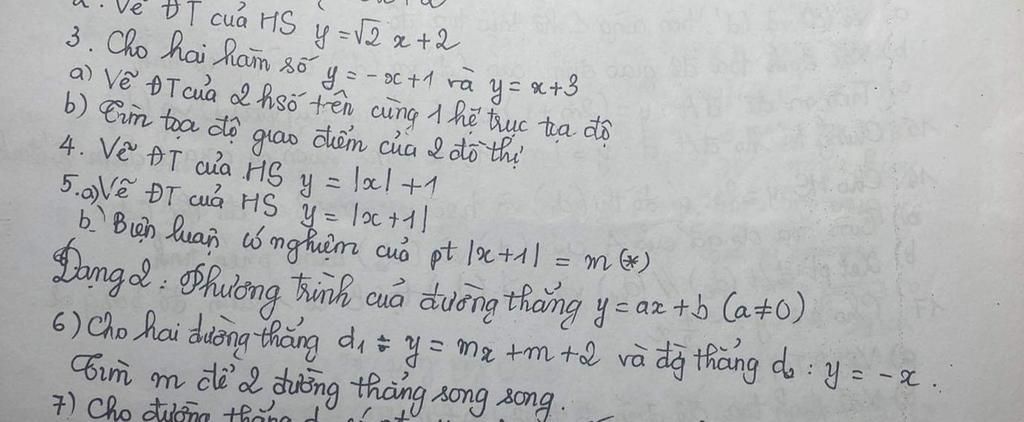 Vẽ ĐT của HS y = √2 x + 2
3. Cho hai hàm số y = -x + 1 và y = x + 3
a) Vẽ ĐT của 2 hsố trên cùng 1 hệ trục tọa độ
b) Tìm tọa độ giao điểm của 2 đồ thị
4. Vẽ ĐT của HS y = |x| + 1
5. a) Vẽ ĐT của HS y = |x + 1|
b. Biện luận có nghiệm của pt |x + 1| = m (*)
Dạng 2: Phương trình của đường thẳng y = ax + b (a ≠ 0)
6) Cho hai đường thẳng d₁ : y = mx + m + 2 và đg thẳng d₂ : y = -x.
Tìm m để 2 đường thẳng song song.
7) Cho đường thẳng d